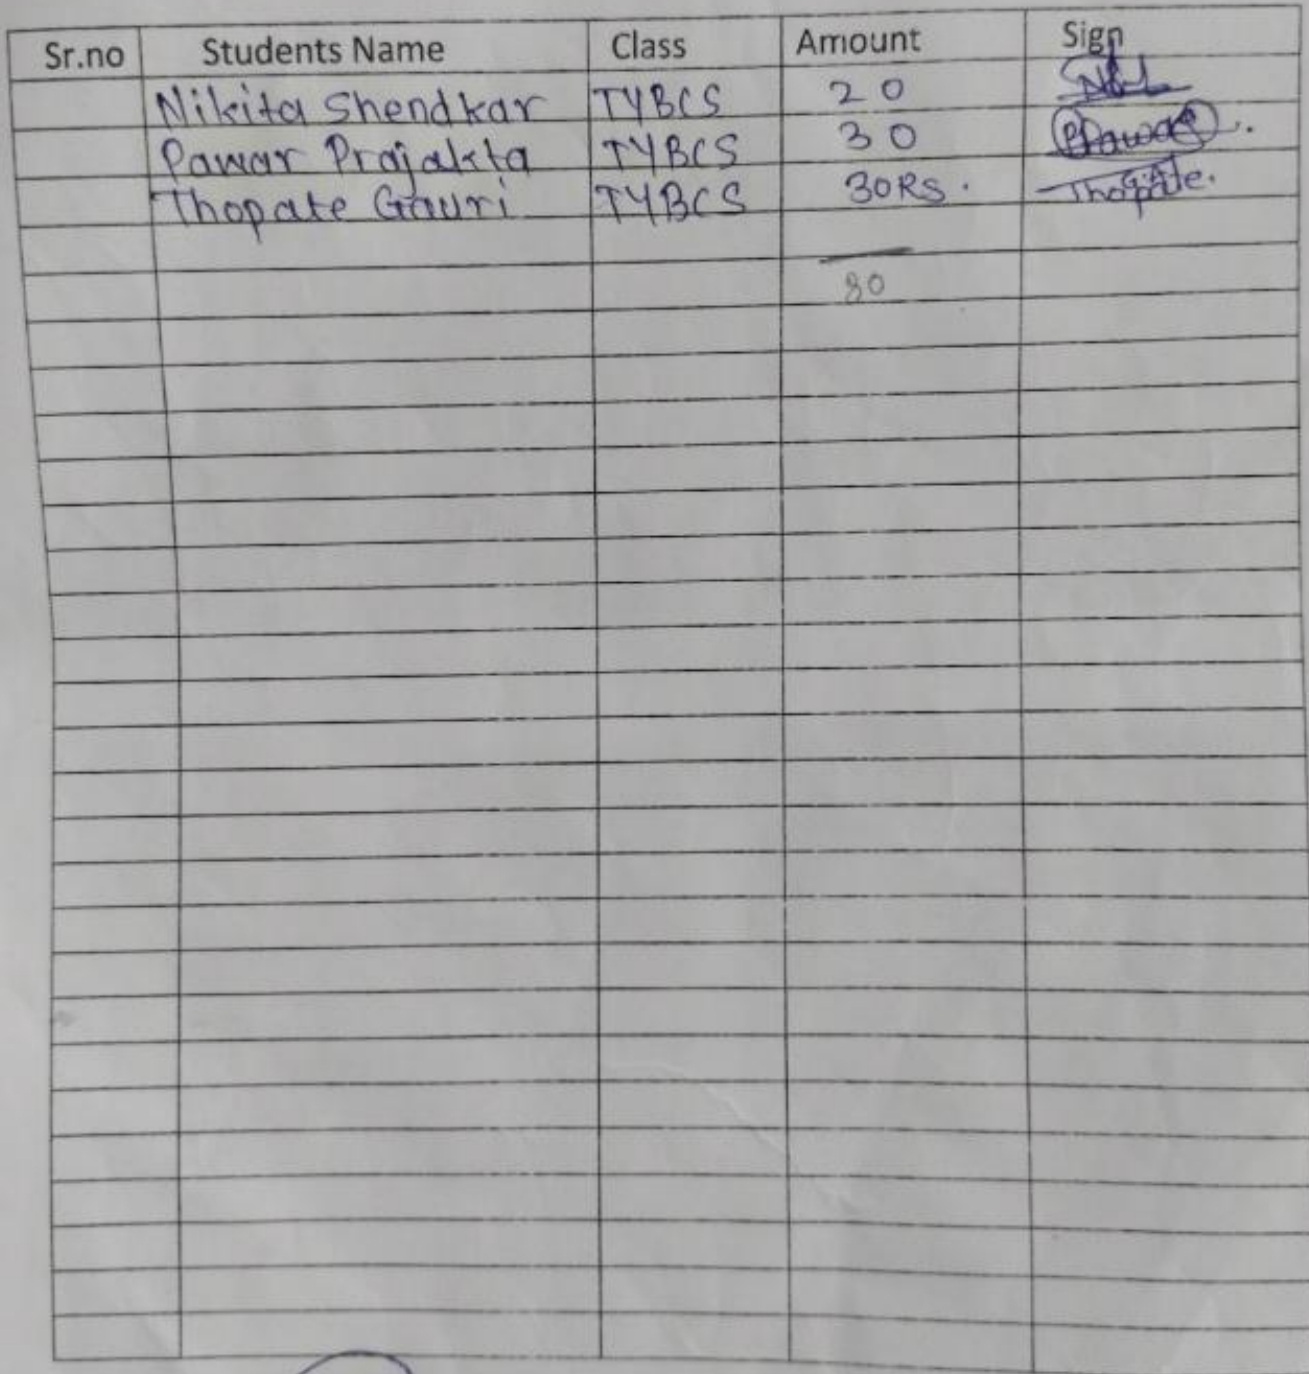 Sr.no Students Name Class Amount Sign
Nikita Shendkar TYBCS 20
Pawar Prajakta TYBCS 30 PPawar.
Thopate Gauri TYBCS 30RS. Thopate.
80